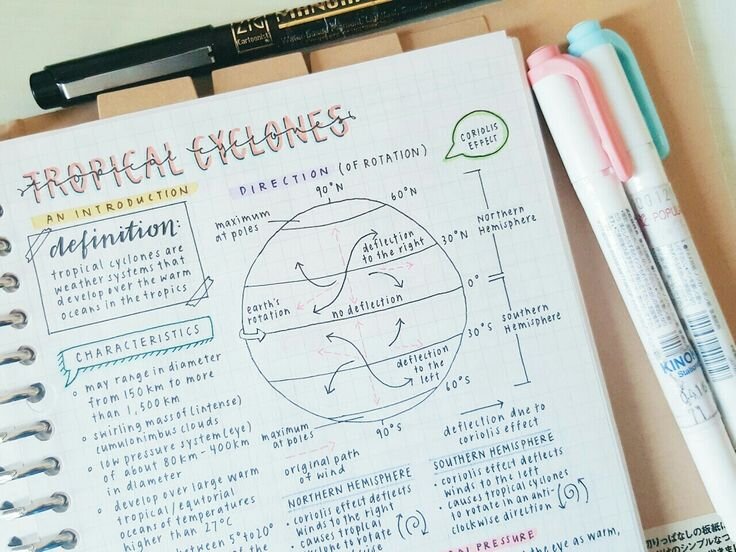 ZIG
Cartoonist
TROPICAL CYCLONES
tropical cyclones
AN INTRODUCTION
definition:
tropical cyclones are
weather systems that
develop over the warm
oceans in the tropics
CHARACTERISTICS
may range in diameter
from 150km to more
than 1,500km
swirling mass of (intense)
cumulonimbus clouds
low pressure system (eye)
of about 80km - 400km
in diameter
develop over large warm
tropical / equtorial
oceans of temperatures
higher than 27°C
between 5° to 20°
of the
DIRECTION (OF ROTATION)
CORIOLIS
EFFECT
90°N
60°N
maximum
at poles
deflection
to the right
30°N
Northern
Hemisphere
earth's
rotation
no deflection
0°
Southern
Hemisphere
30°S
deflection
to the
left
60°S
maximum
at poles
90°S
original path
of wind
deflection due to
coriolis effect
NORTHERN HEMISPHERE
coriolis effect deflects
winds to the right
causes tropical
cyclone to rotate
SOUTHERN HEMISPHERE
coriolis effect deflects
winds to the left
causes tropical cyclones
to rotate in an anti-
clockwise direction
PRESSURE
the eye as warm,
POPUL
KINO
切りっぱなしの板紙に